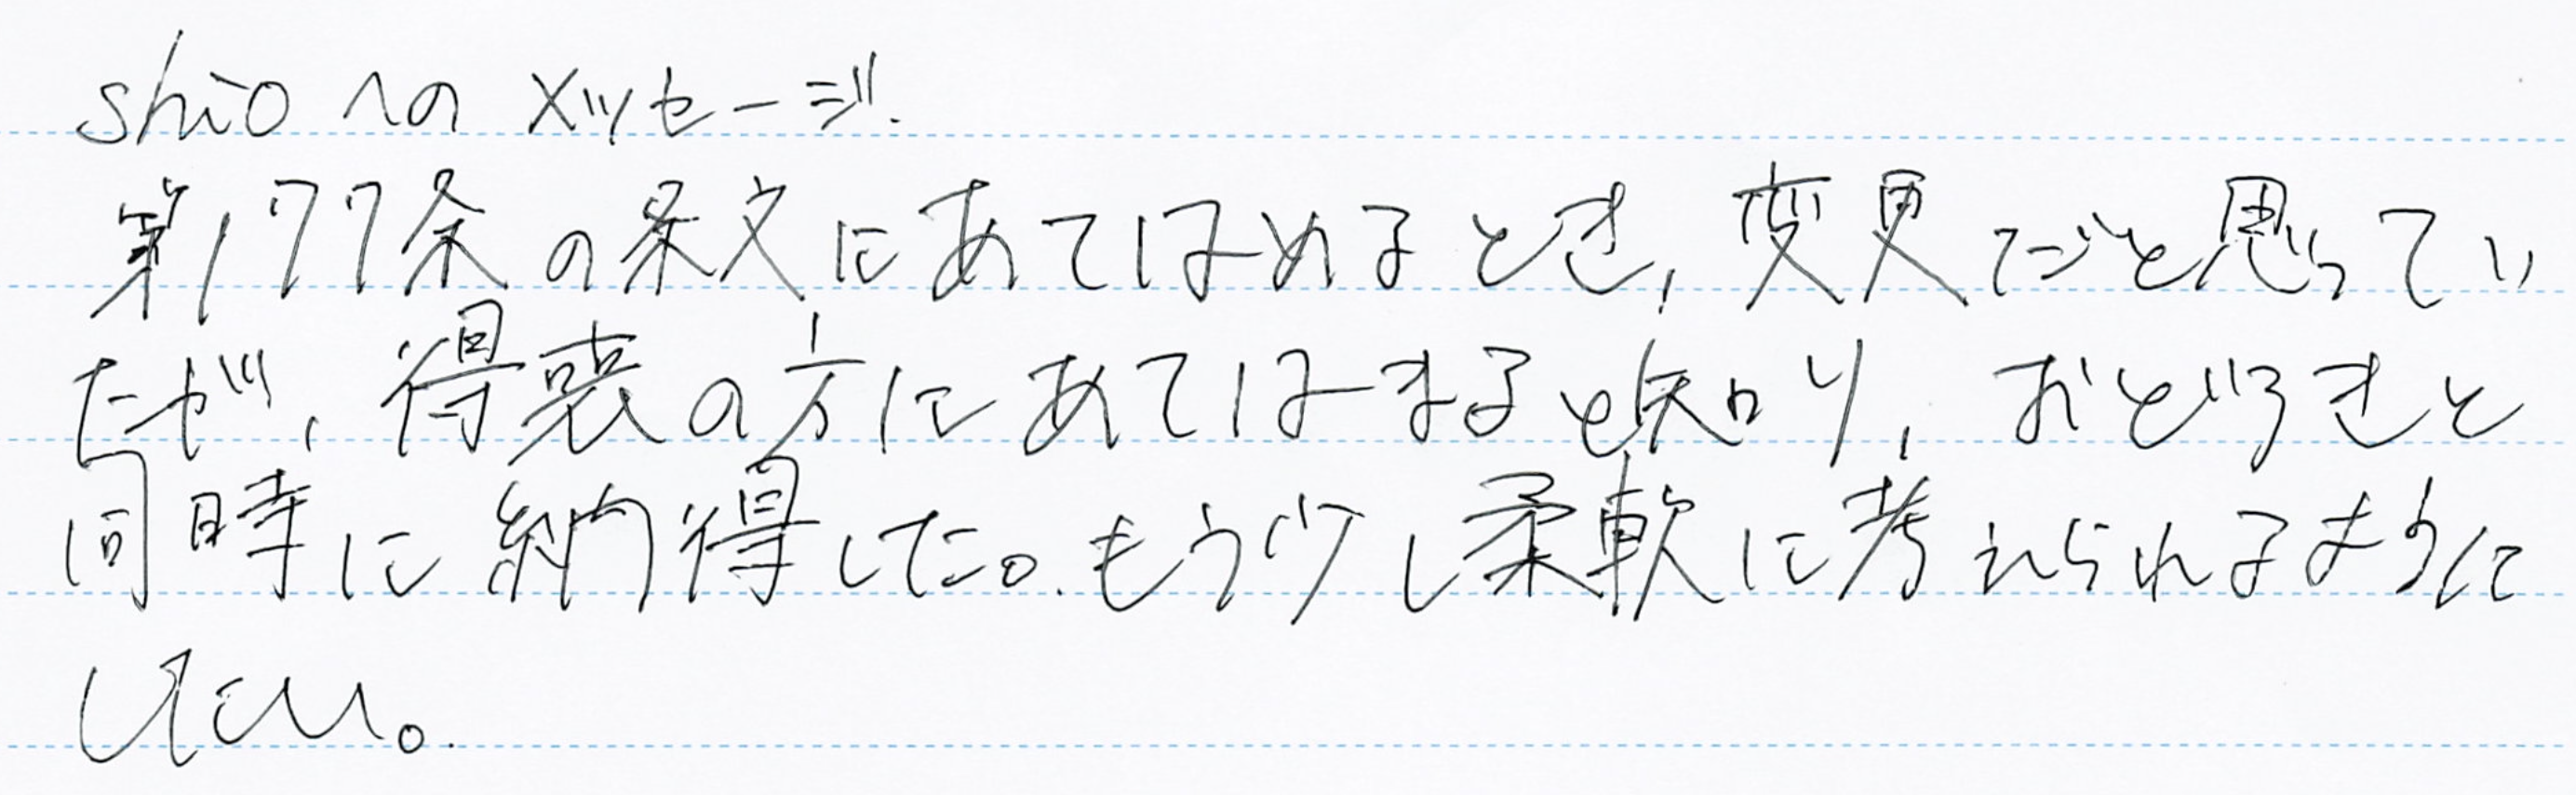 shioへのメッセージ.
第177条の条文にあてはめるとき,変更だと思ってい
たが,得喪の方にあてはまると知り,おどろきと
同時に納得した。もう少し柔軟に考えられるように
したい。